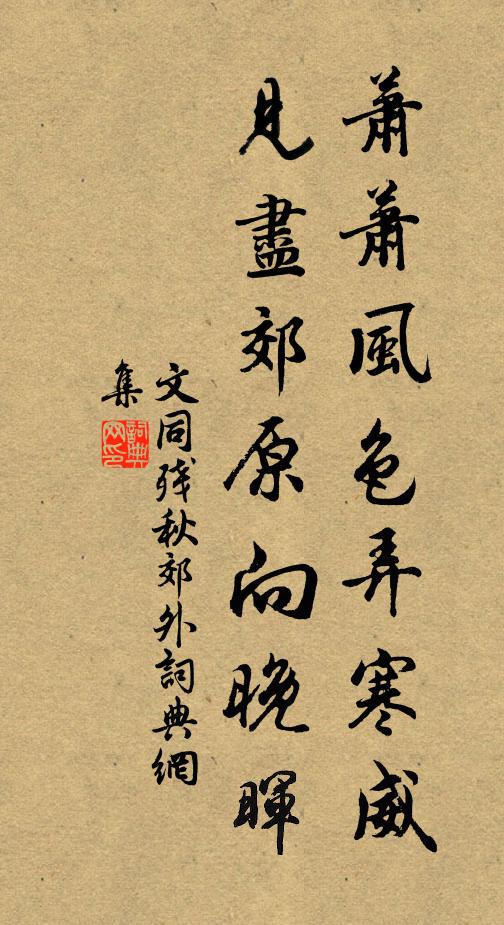 蕭蕭風色弄寒威
見盡郊原向晚暉
文同殘秋郊外詞典網
集
詞典
網印